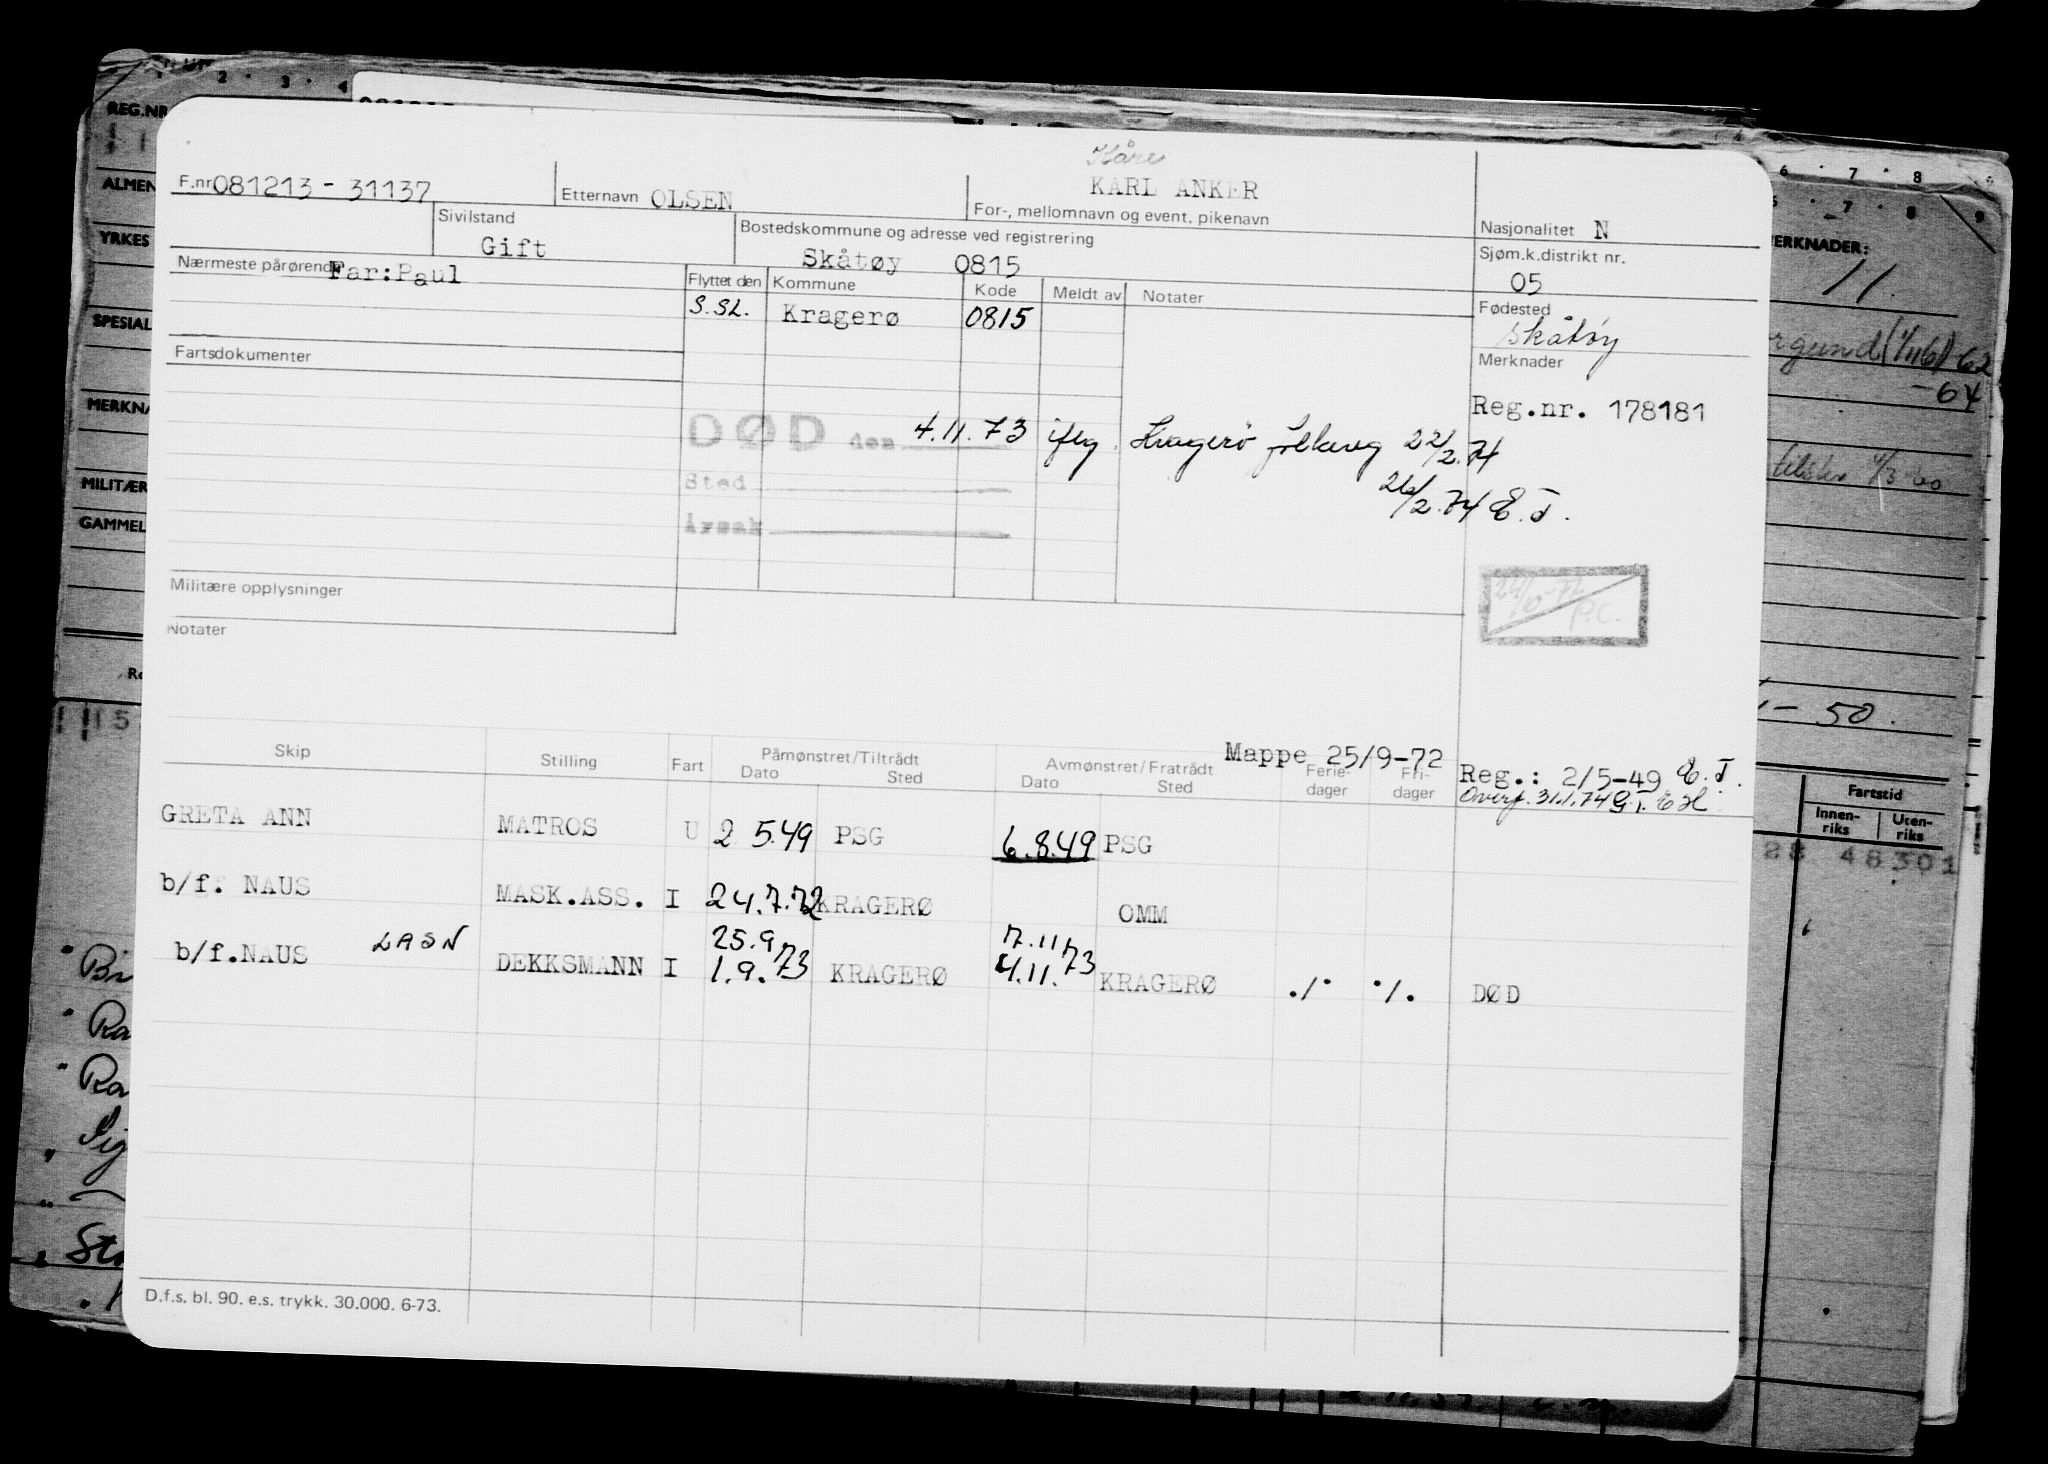 1 2 3 4
REG.NR
ALMEN
YRKES
SPESIAL
MERKNA
MILITÆR
GAMMEL
Kåre
F.nr 081213 - 31137
Etternavn OLSEN
KARL ANKER
For-, mellomnavn og event. pikenavn
Nasjonalitet N
Sivilstand
Gift
Bostedskommune og adresse ved registrering
Skåtøy 0815
Sjøm.k.distrikt nr.
05
Nærmeste pårørende Far:Paul
Flyttet den Kommune Kode Meldt av Notater
S.SL. Kragerø 0815
Fødested
Skåtøy
Fartsdokumenter
Merknader
Reg.nr. 178181
DØD den 4.11.73 iflg. Kragerø folkereg 22/2.74
Sted
26/2.74 E.T.
Årsak
Militære opplysninger
Notater
P.C.
Mappe 25/9-72
Skip Stilling Fart Påmønstret/Tiltrådt Avmønstret/Fratrådt Ferie- Fri-
Dato Sted Dato Sted dager dager
Reg.: 2/5-49 E.T.
Overf. 31.1.74 G.T. E H
GRETA ANN MATROS U 2 5.49 PSG 6.8.49 PSG
b/f. NAUS MASK.ASS. I 24.7.72 KRAGERØ OMM
25.9. 7.11
b/f.NAUS LASN DEKKSMANN I 1.9.73 KRAGERØ 4.11.73 KRAGERØ ./. ./. DØD
D.f.s. bl. 90. e.s. trykk. 30.000. 6-73.
6 7 8 9
7 8 9
MERKNADER:
11.
(1/116) 62
- 64
4/3 60
- 50.
Fartstid
Innen-
riks
Uten-
riks
28 48301